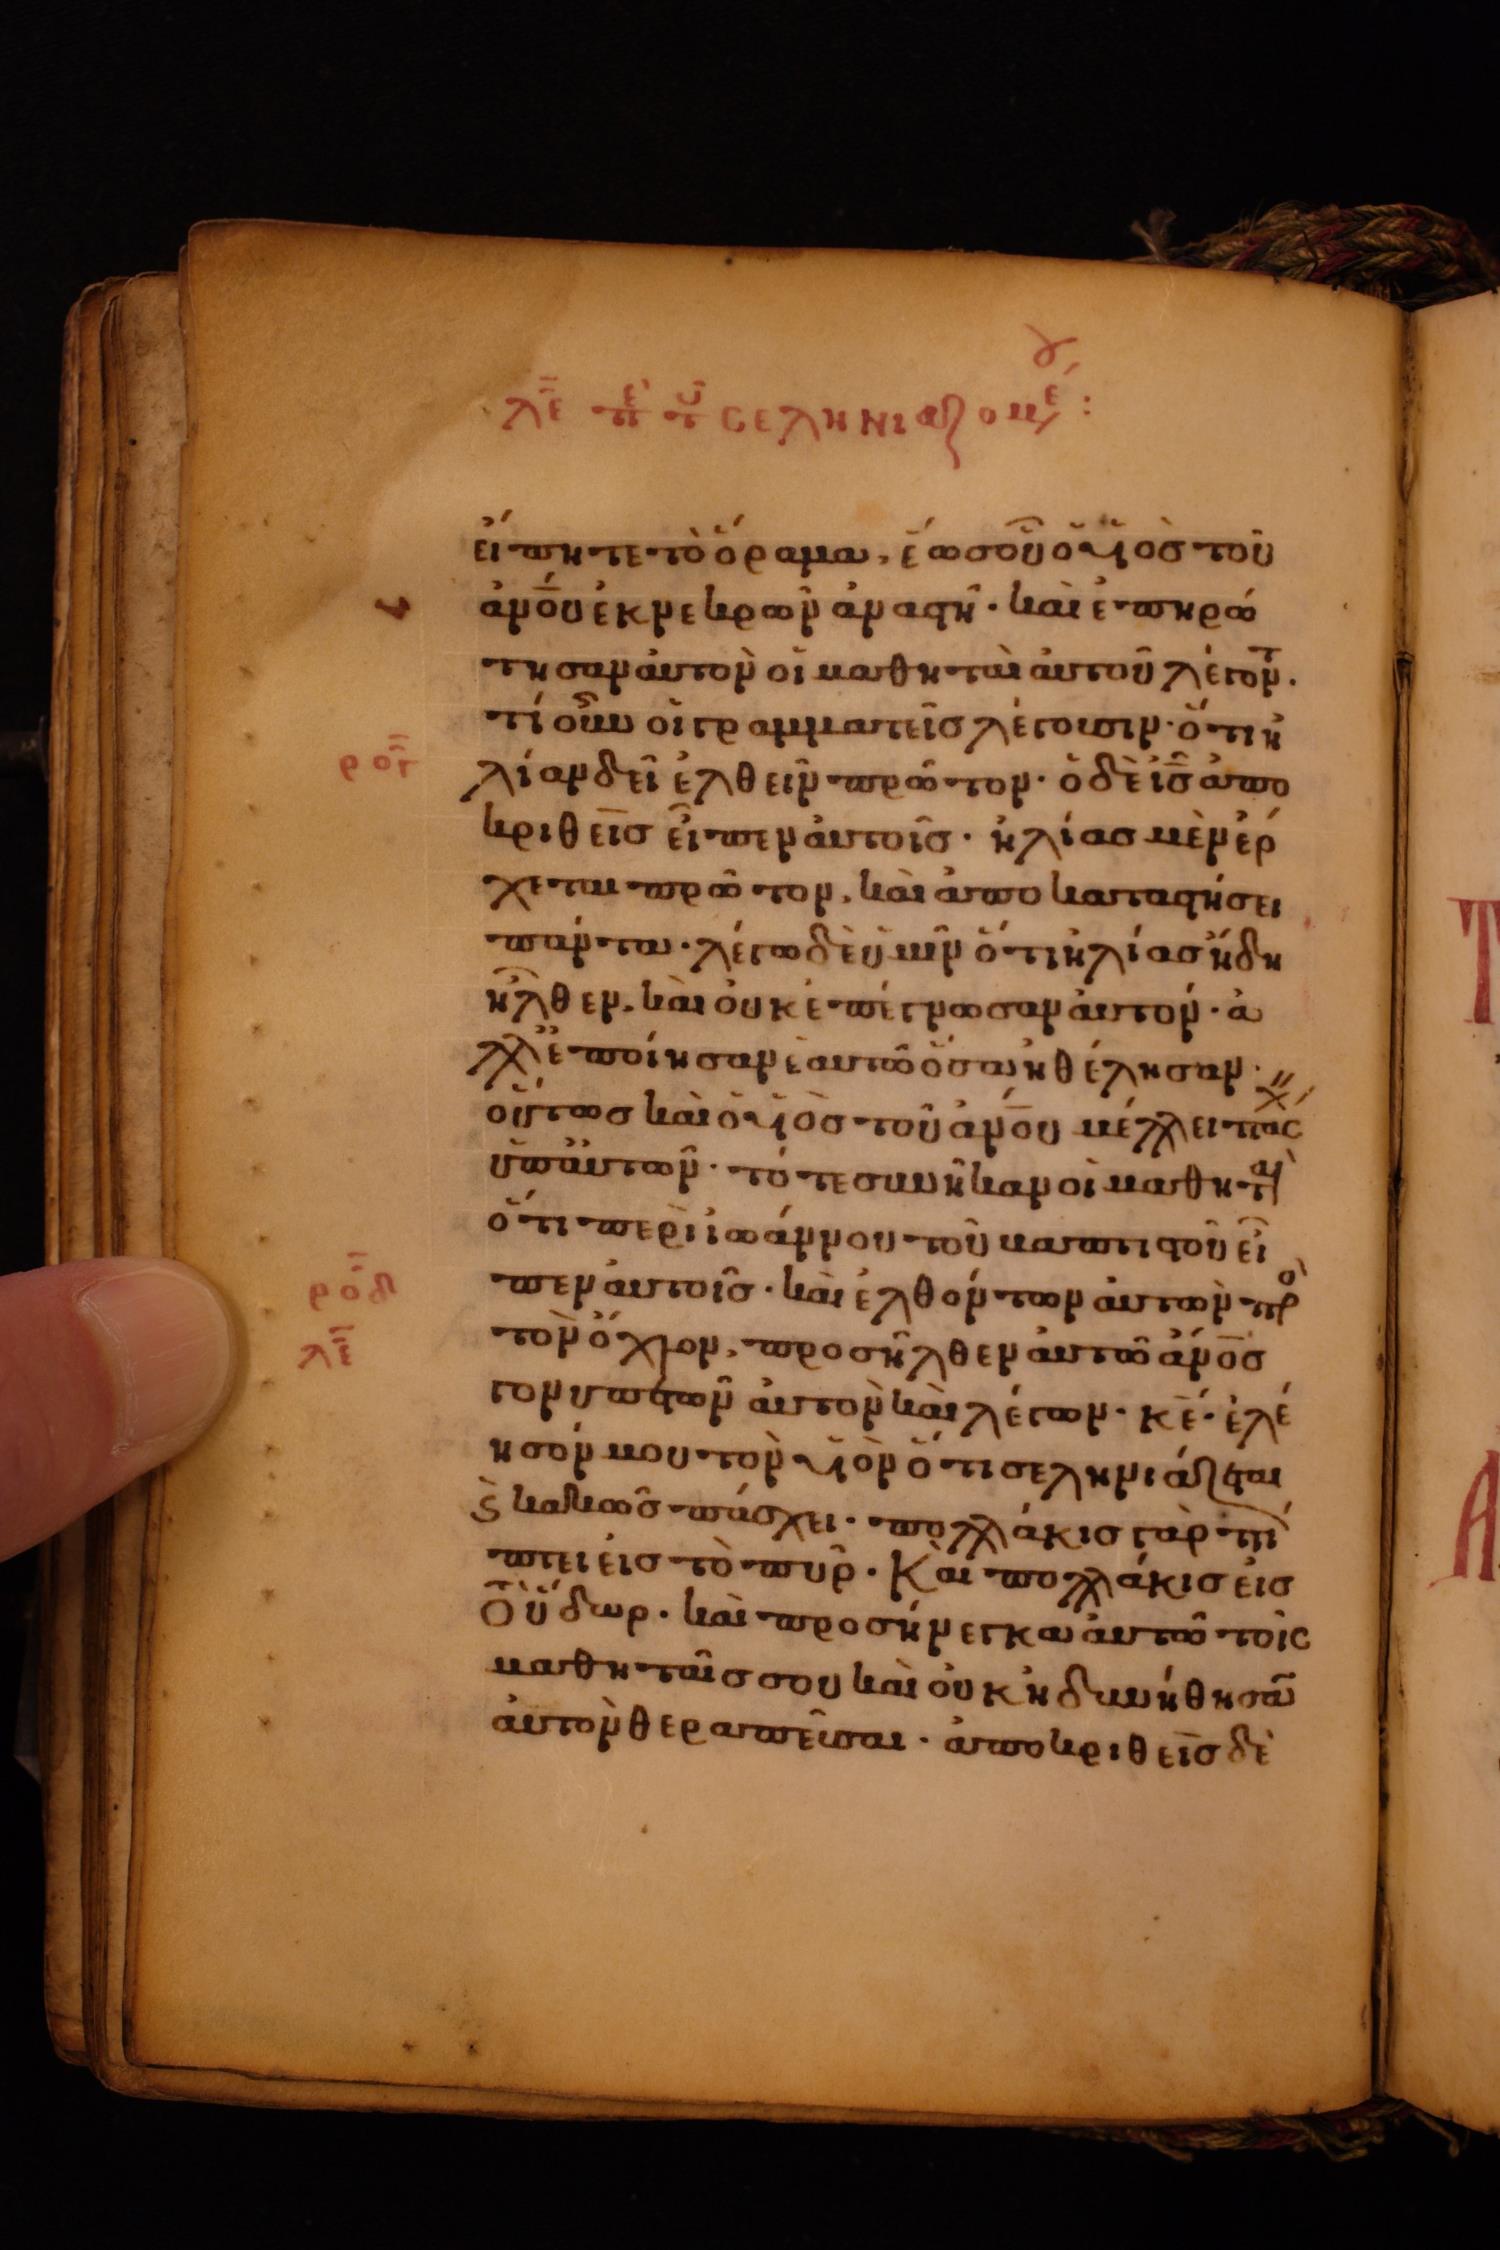 λε πε του σεληνιαζομε :
εἴπητε τὸ ὅραμα, ἕως οὗ ὁ υἱὸς τοῦ
ἀνου ἐκ νεκρῶν ἀναστῆ · καὶ ἐπηρώ
τησαν αὐτὸν οἱ μαθηταὶ αὐτοῦ λέγοντ ·
τί οὖν οἱ γραμματεῖς λέγουσιν · ὅτι ἠ
ρογ
λίαν δεῖ ἐλθεῖν πρῶτον · ὁ δὲ ις ἀπο
κριθεὶς εἶπεν αὐτοῖς · ἠλίας μὲν ἔρ
χεται πρῶτον, καὶ ἀποκαταστήσει
πάντα · λέγω δὲ ὑμῖν ὅτι ἠλίας ἤδη
ἦλθεν, καὶ οὐκ ἐπέγνωσαν αὐτόν · ἀ
λλ ἐποίησαν ἐαυτῶ ὅσα ἠθέλησαν ·
οὕτως καὶ ὁ υἱὸς τοῦ ἀνου μέλλει πασχ
ὑπ αὐτῶν · τότε συνῆκαν οἱ μαθηται
ὅτι περὶ ἰωάννου τοῦ βαπτιστοῦ εἶ
ροδ
πεν αὐτοῖς · καὶ ἐλθόντων αὐτῶν προ
λε
τὸν ὄχλον, προσῆλθεν αὐτῶ ἀνος
γονυπετῶν αὐτὸν καὶ λέγων · κε · ἐλέ
ησόν μου τὸν υἱὸν ὅτι σεληνιάζεται
ϛ κακῶς πάσχει · πολλάκις γὰρ πί
πτει εἰς τὸ πῦρ · Καὶ πολλάκις εἰς
τὸ ὕδωρ · καὶ προσήνεγκα αὐτῶ τοῖς
μαθηταῖς σου καὶ οὐκ ἠδυνήθησαν
αὐτὸν θεραπεῦσαι · ἀποκριθεὶς δὲ